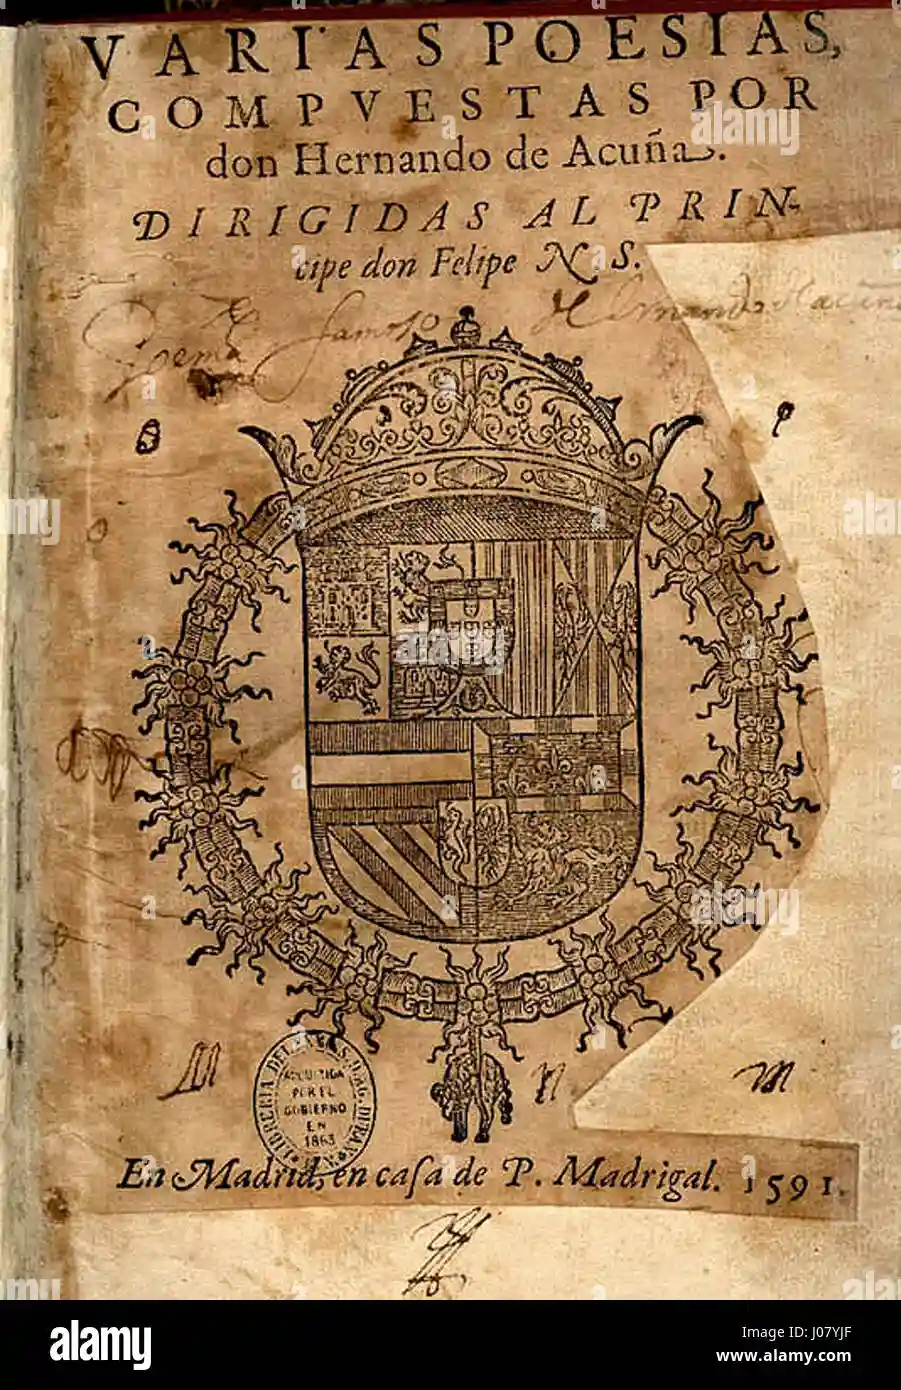 VARIAS POESIAS,
COMPVESTAS POR
don Hernando de Acuña.
DIRIGIDAS AL PRIN-
cipe don Felipe N. S.
famoso
En Madrid, en caſa de P. Madrigal. 1591.
LIBRERIA DEL
ADQUIRIDA
POR EL
GOBIERNO
EN
1863
alamy
Image ID: J07YJF
www.alamy.com